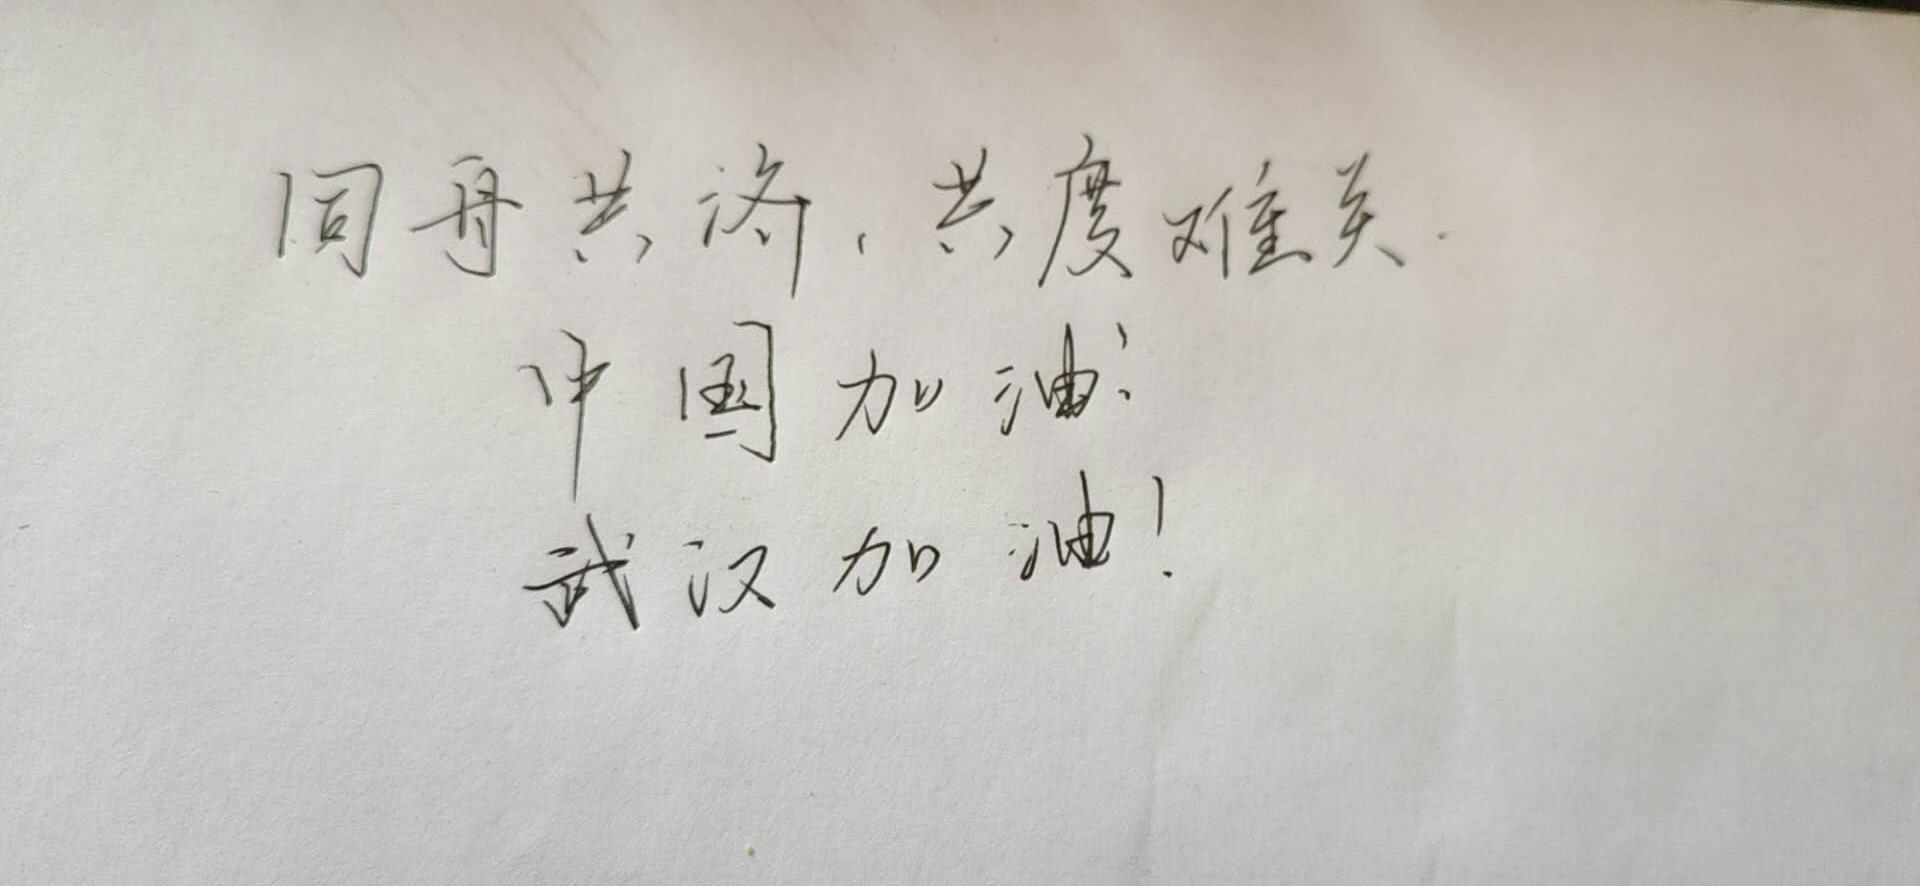 同舟共济，共度难关.
中国加油！
武汉加油！